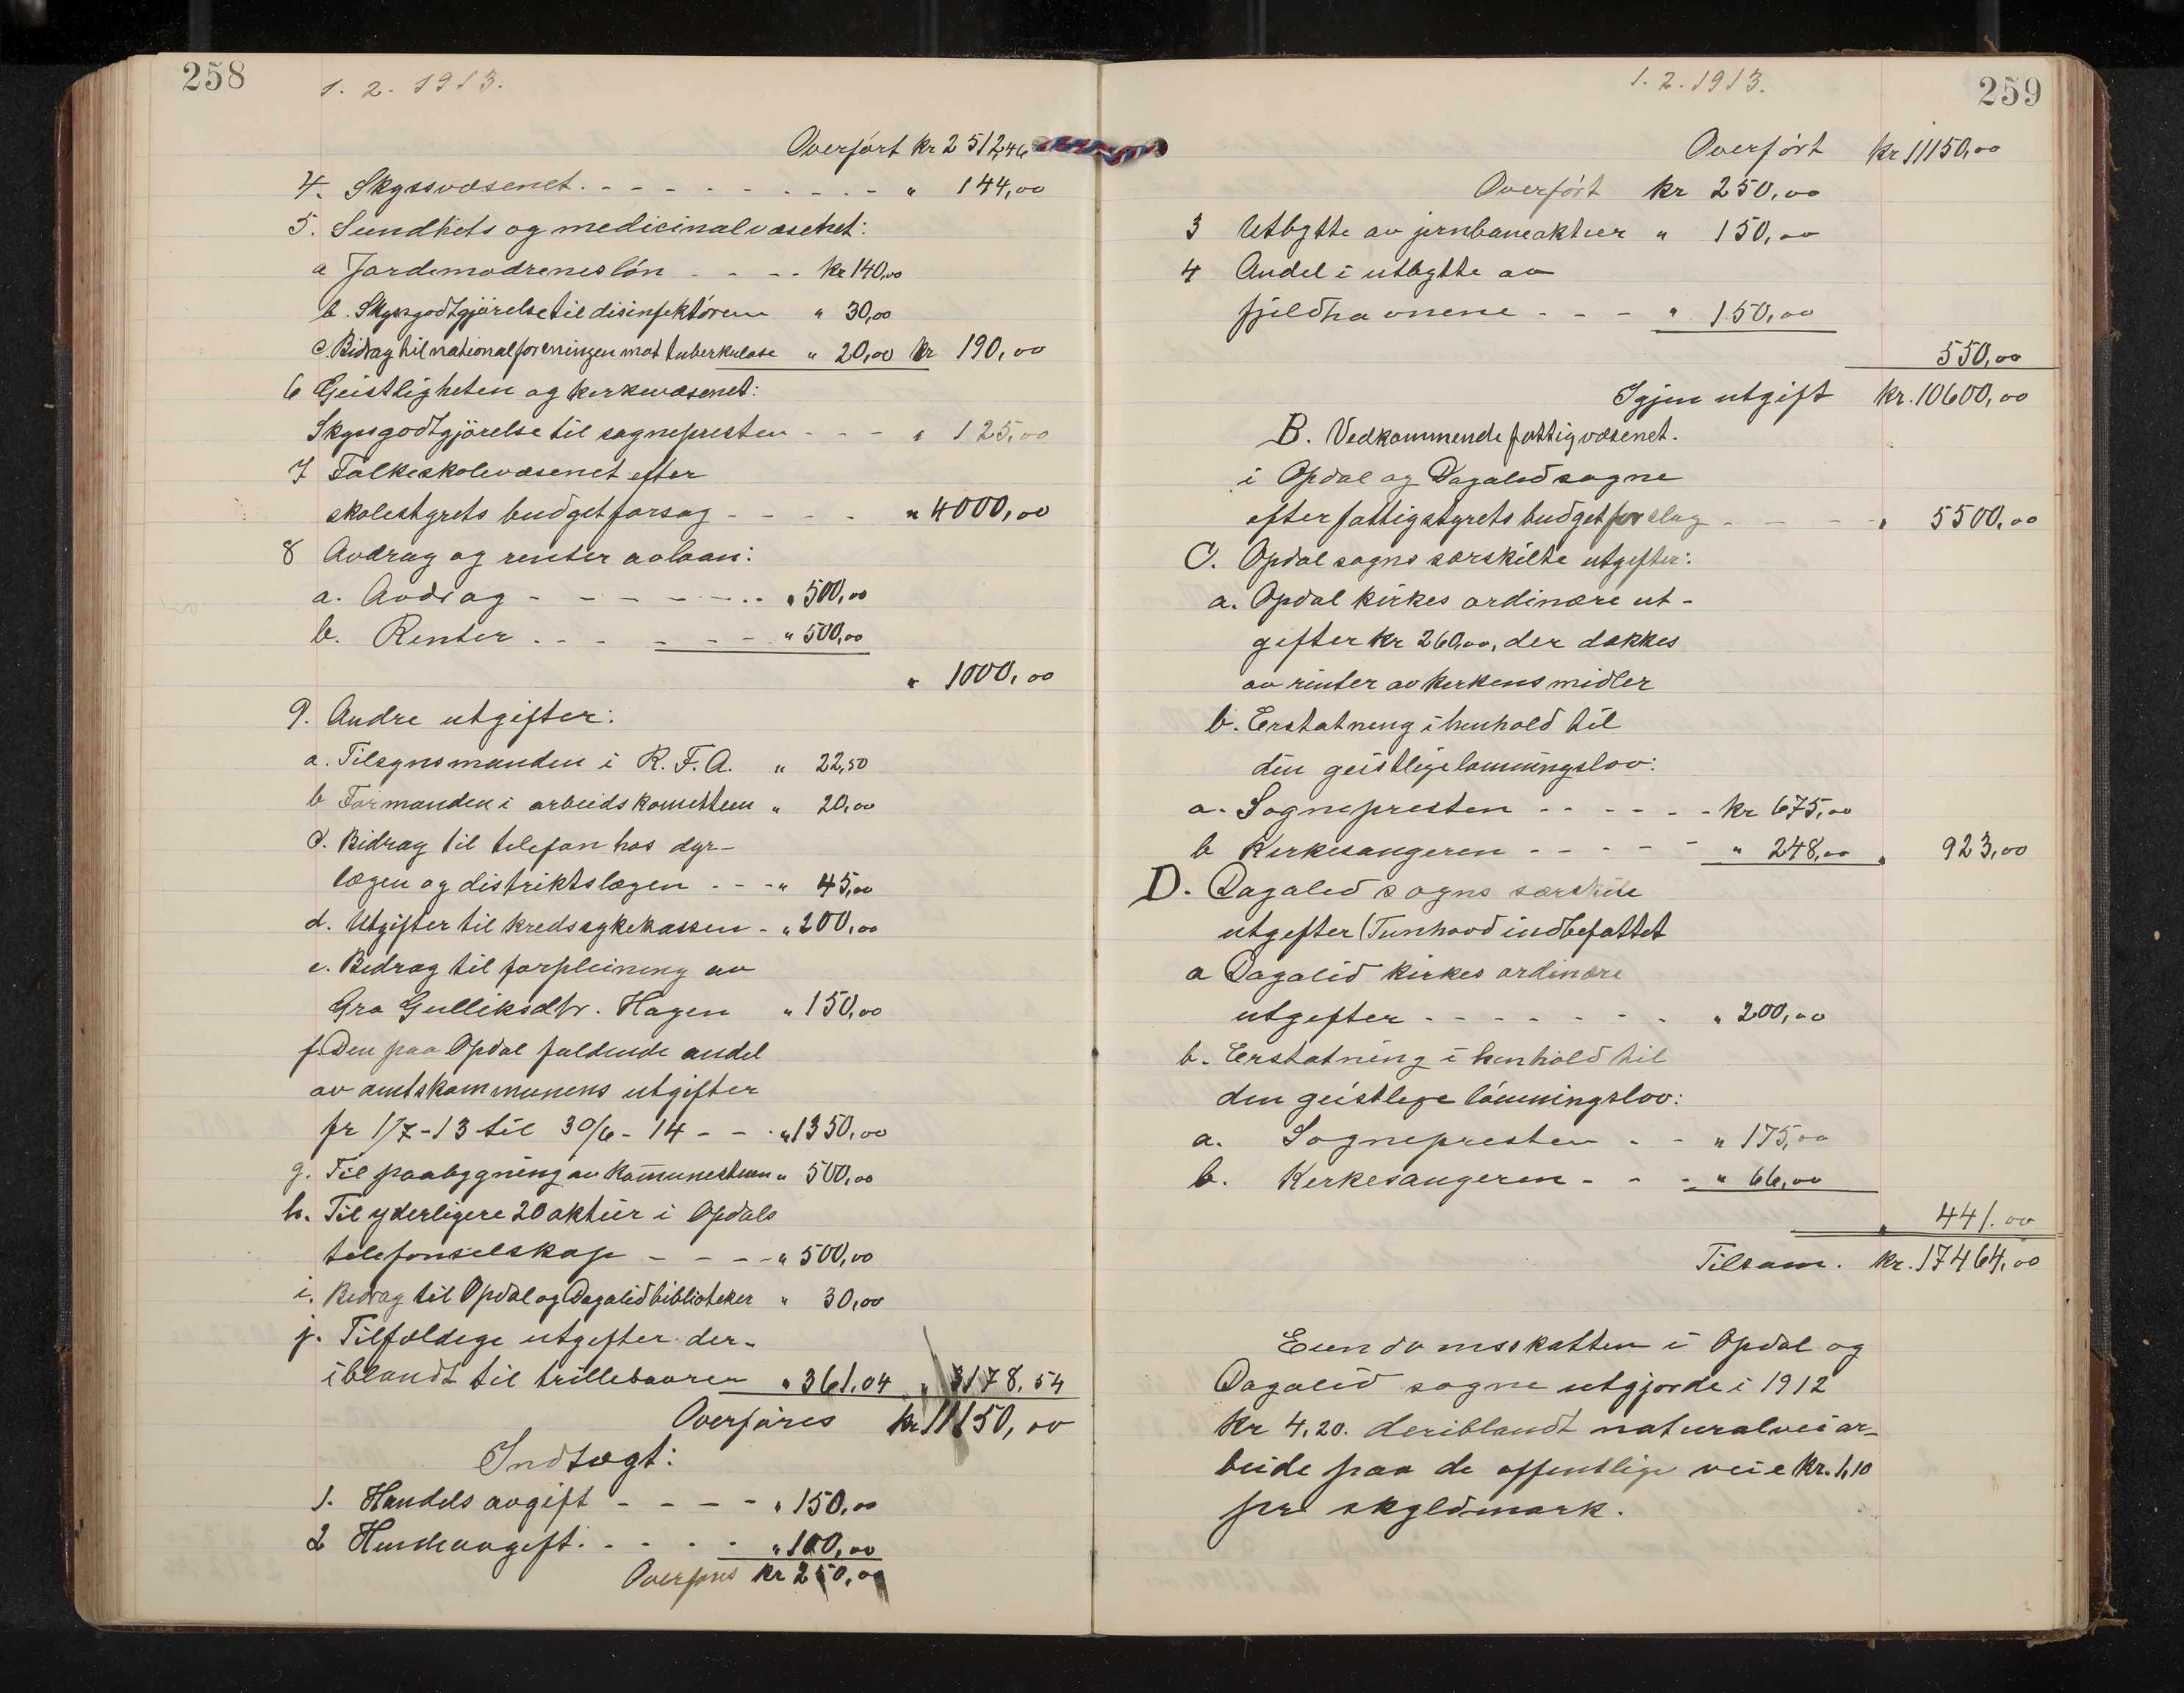 258
1. 2. 1913.
Overført kr 2512,46
4. Skyssvæsenet. - - - - - - - - " 144,00
5. Sundhets og medicinalvæsenet:
a Jordemodreneslön - - - - kr 140,00
b. Skyssgodtgjörelse til disinfektören " 30,00
c. Bidrag til nationalforeningen mot tuberkulose " 20,00 kr 190,00
6 Geistligheten og kirkevæsenet:
Skyssgodtgjörelse til sognepresten - - - " 125,00
7 Folkeskolevæsenet efter
skolestyrets budgetforsag - - - - " 4000,00
8 Avdrag og renter av laan:
a. Avdrag - - - - - - - " 500,00
b. Renter - - - - - - " 500,00
" 1000,00
9. Andre utgifter:
a. Tilsynsmanden i R. F. A. " 22,50
b Formanden i arbeidskomitteen " 20,00
c. Bidrag til telefon hos dyr-
lægen og distriktslægen - - - " 45,00
d. Utgifter til kredssykekassen - " 200,00
e. Bidrag til forpleining av
Gro Gulliksdtr. Hagen " 150,00
f. Den paa Opdal faldende andel
av amtskommunens utgifter
fr 1/7-13 til 30/6-14 - - - " 1350,00
g. Til paabygning av komunestuen " 500,00
h. Til yderligere 20 aktier i Opdals
telefonselskap - - - - " 500,00
i. Bidrag til Opdal og Dagalid biblioteker " 30,00
j. Tilfældige utgifter der-
iblandt til trillebaarer " 361,04 " 3178,54
Overføres kr 11150,00
Indtægt:
1. Handels avgift - - - - " 150,00
2 Hundeavgift. - - - - " 100,00
Overføres kr 250,00
1. 2. 1913.
259
Overført kr 11150,00
Overført kr 250,00
3 Utbytte av jernbaneaktier " 150,00
4 Andel i utbytte av
fjeldhavnene - - - " 150,00
550,00
Igjen utgift kr. 10600,00
B. Vedkommende fattigvæsenet.
i Opdal og Dagalid sogne
efter fattigstyrets budgetforslag - - - - " 5500,00
C. Opdal sogns særskilte utgifter:
a. Opdal kirkes ordinære ut-
gifter kr 260,00, der dækkes
av renter av kirkens midler
b. Erstatning i henhold til
den geistlige lønningslov:
a. Sognepresten - - - - - - kr 675,00
b Kirkesangeren - - - - - " 248,00 " 923,00
D. Dagalid sogns særskilte
utgifter (Tunhovd indbefattet
a Dagalid kirkes ordinære
utgifter - - - - - - - " 200,00
b. Erstatning i henhold til
den geistlige lönningslov:
a. Sognepresten - - " 175,00
b. Kirkesangeren - - - " 66,00
" 441.00
Tilsam. kr. 17464,00
Eiendomsskatten i Opdal og
Dagalid sogne utgjorde i 1912
kr 4,20. deriblandt naturalveiar-
beide paa de offentlige veie kr. 1,10
pr skyldmark.